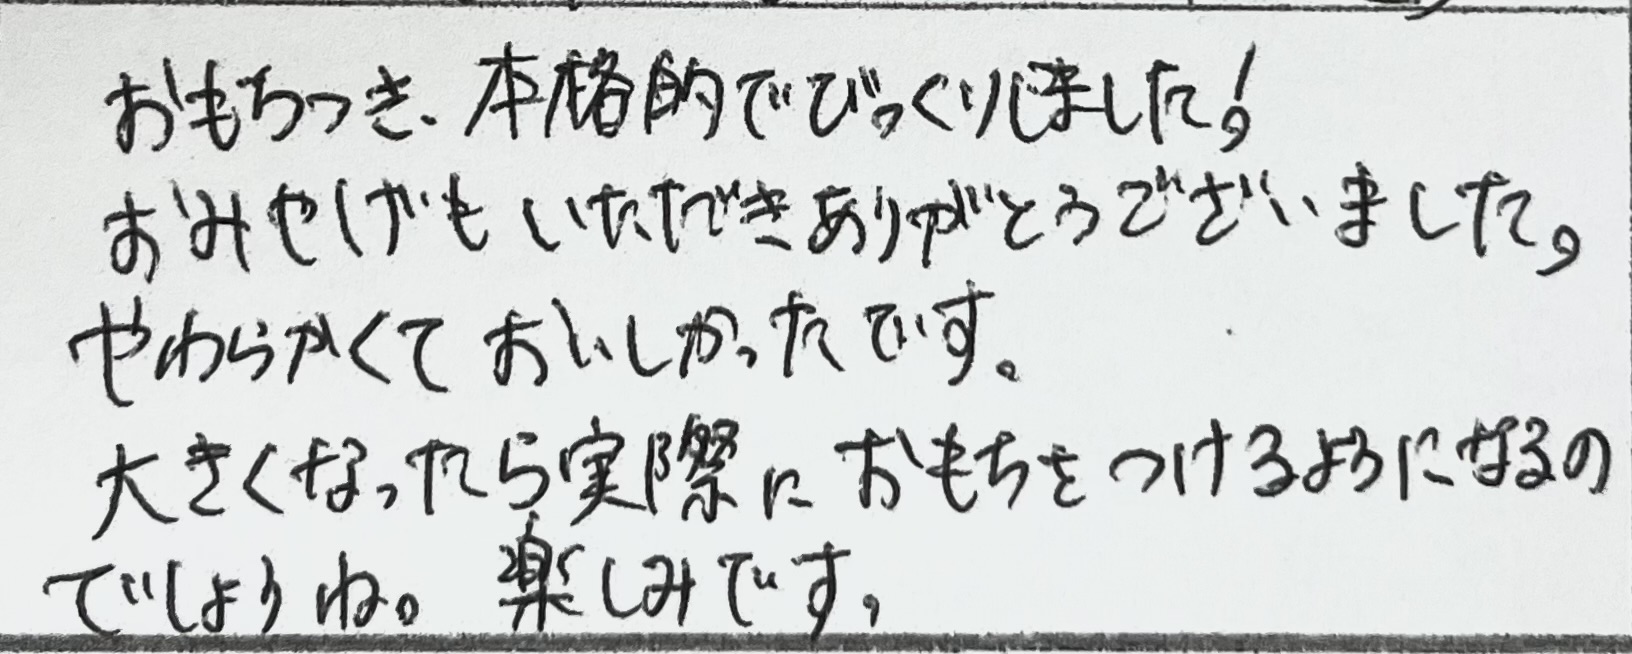 おもちつき、本格的でびっくりしました!
おみやげもいただきありがとうございました。
やわらかくておいしかったです。
大きくなったら実際におもちをつけるようになるの
でしょうね。楽しみです。